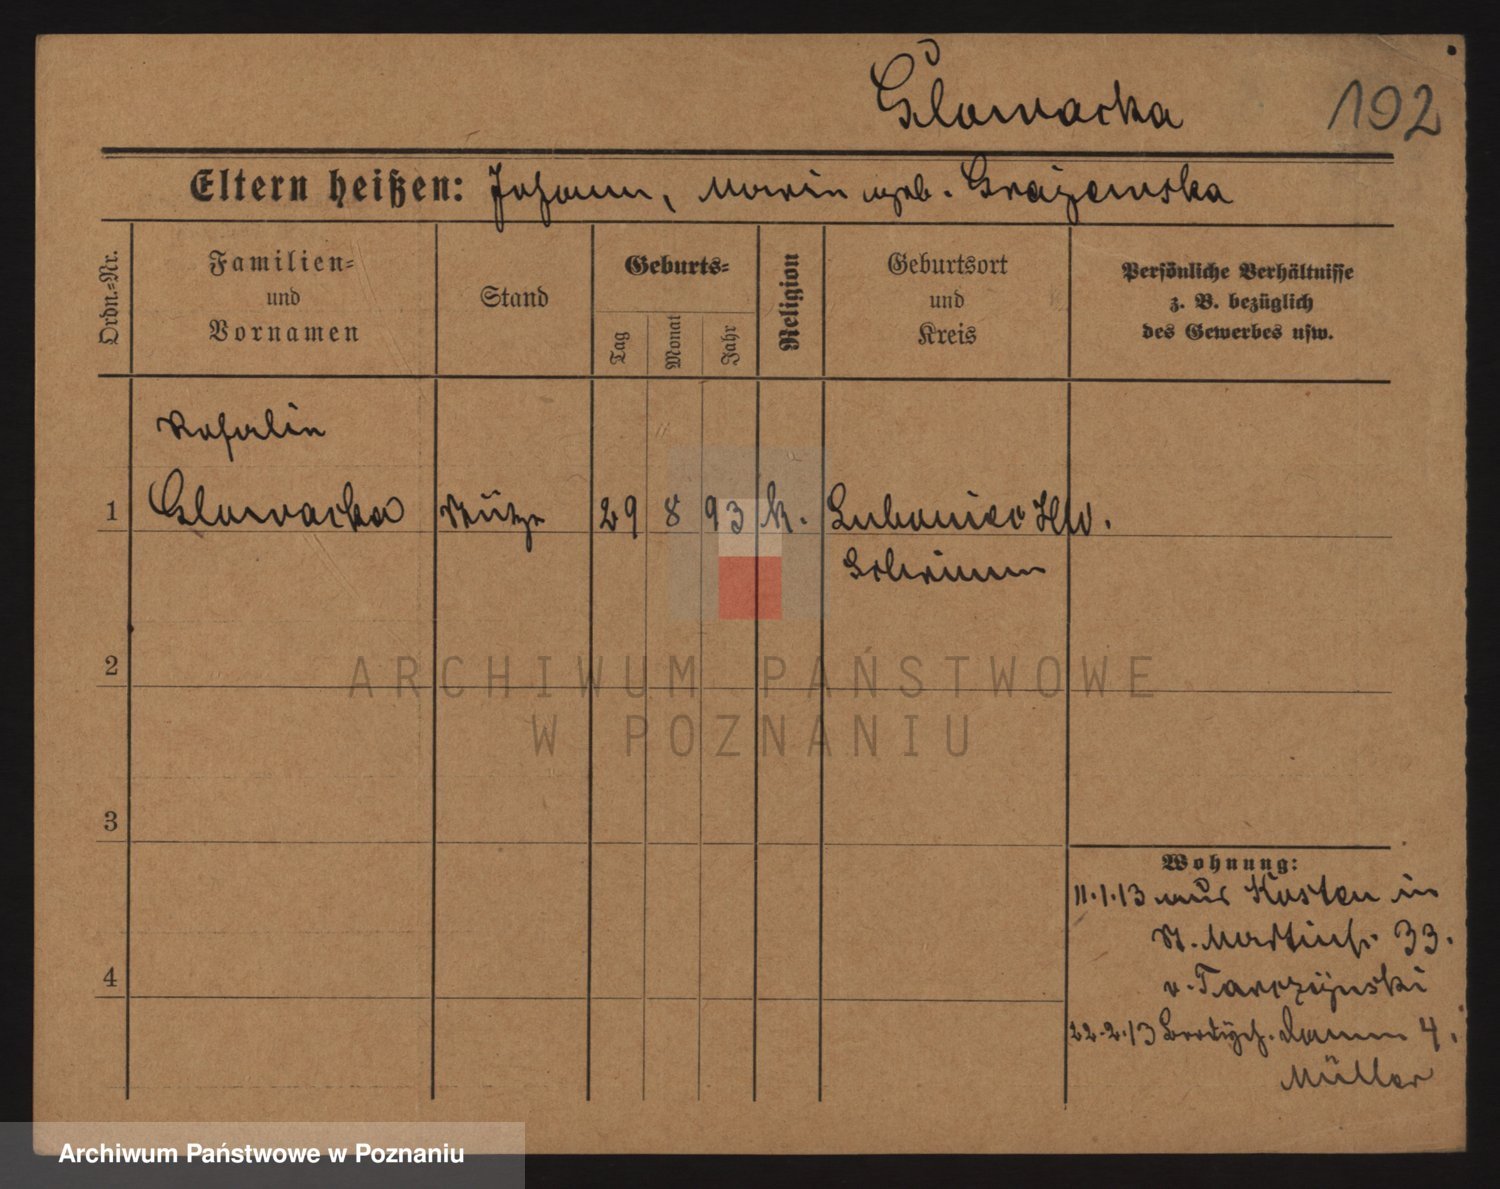 Głowacka
192
Eltern heißen: Johann, Marie geb. Grazewska
Ordn.=Nr.
Familien=
und
Vornamen
Stand
Geburts=
Tag
Monat
Jahr
Religion
Geburtsort
und
Kreis
Persönliche Verhältnisse
z. B. bezüglich
des Gewerbes usw.
Rosalie
1 Glowacka Stütze 29 8 93 k. Luboniec
2
3
4
Wohnung:
11.1.13 aus Kosten in
St. Martinst. 33.
v. Tarczynski
22.2.13 damm 4.
Müller
ARCHIWUM PAŃSTWOWE
W POZNANIU
Archiwum Państwowe w Poznaniu